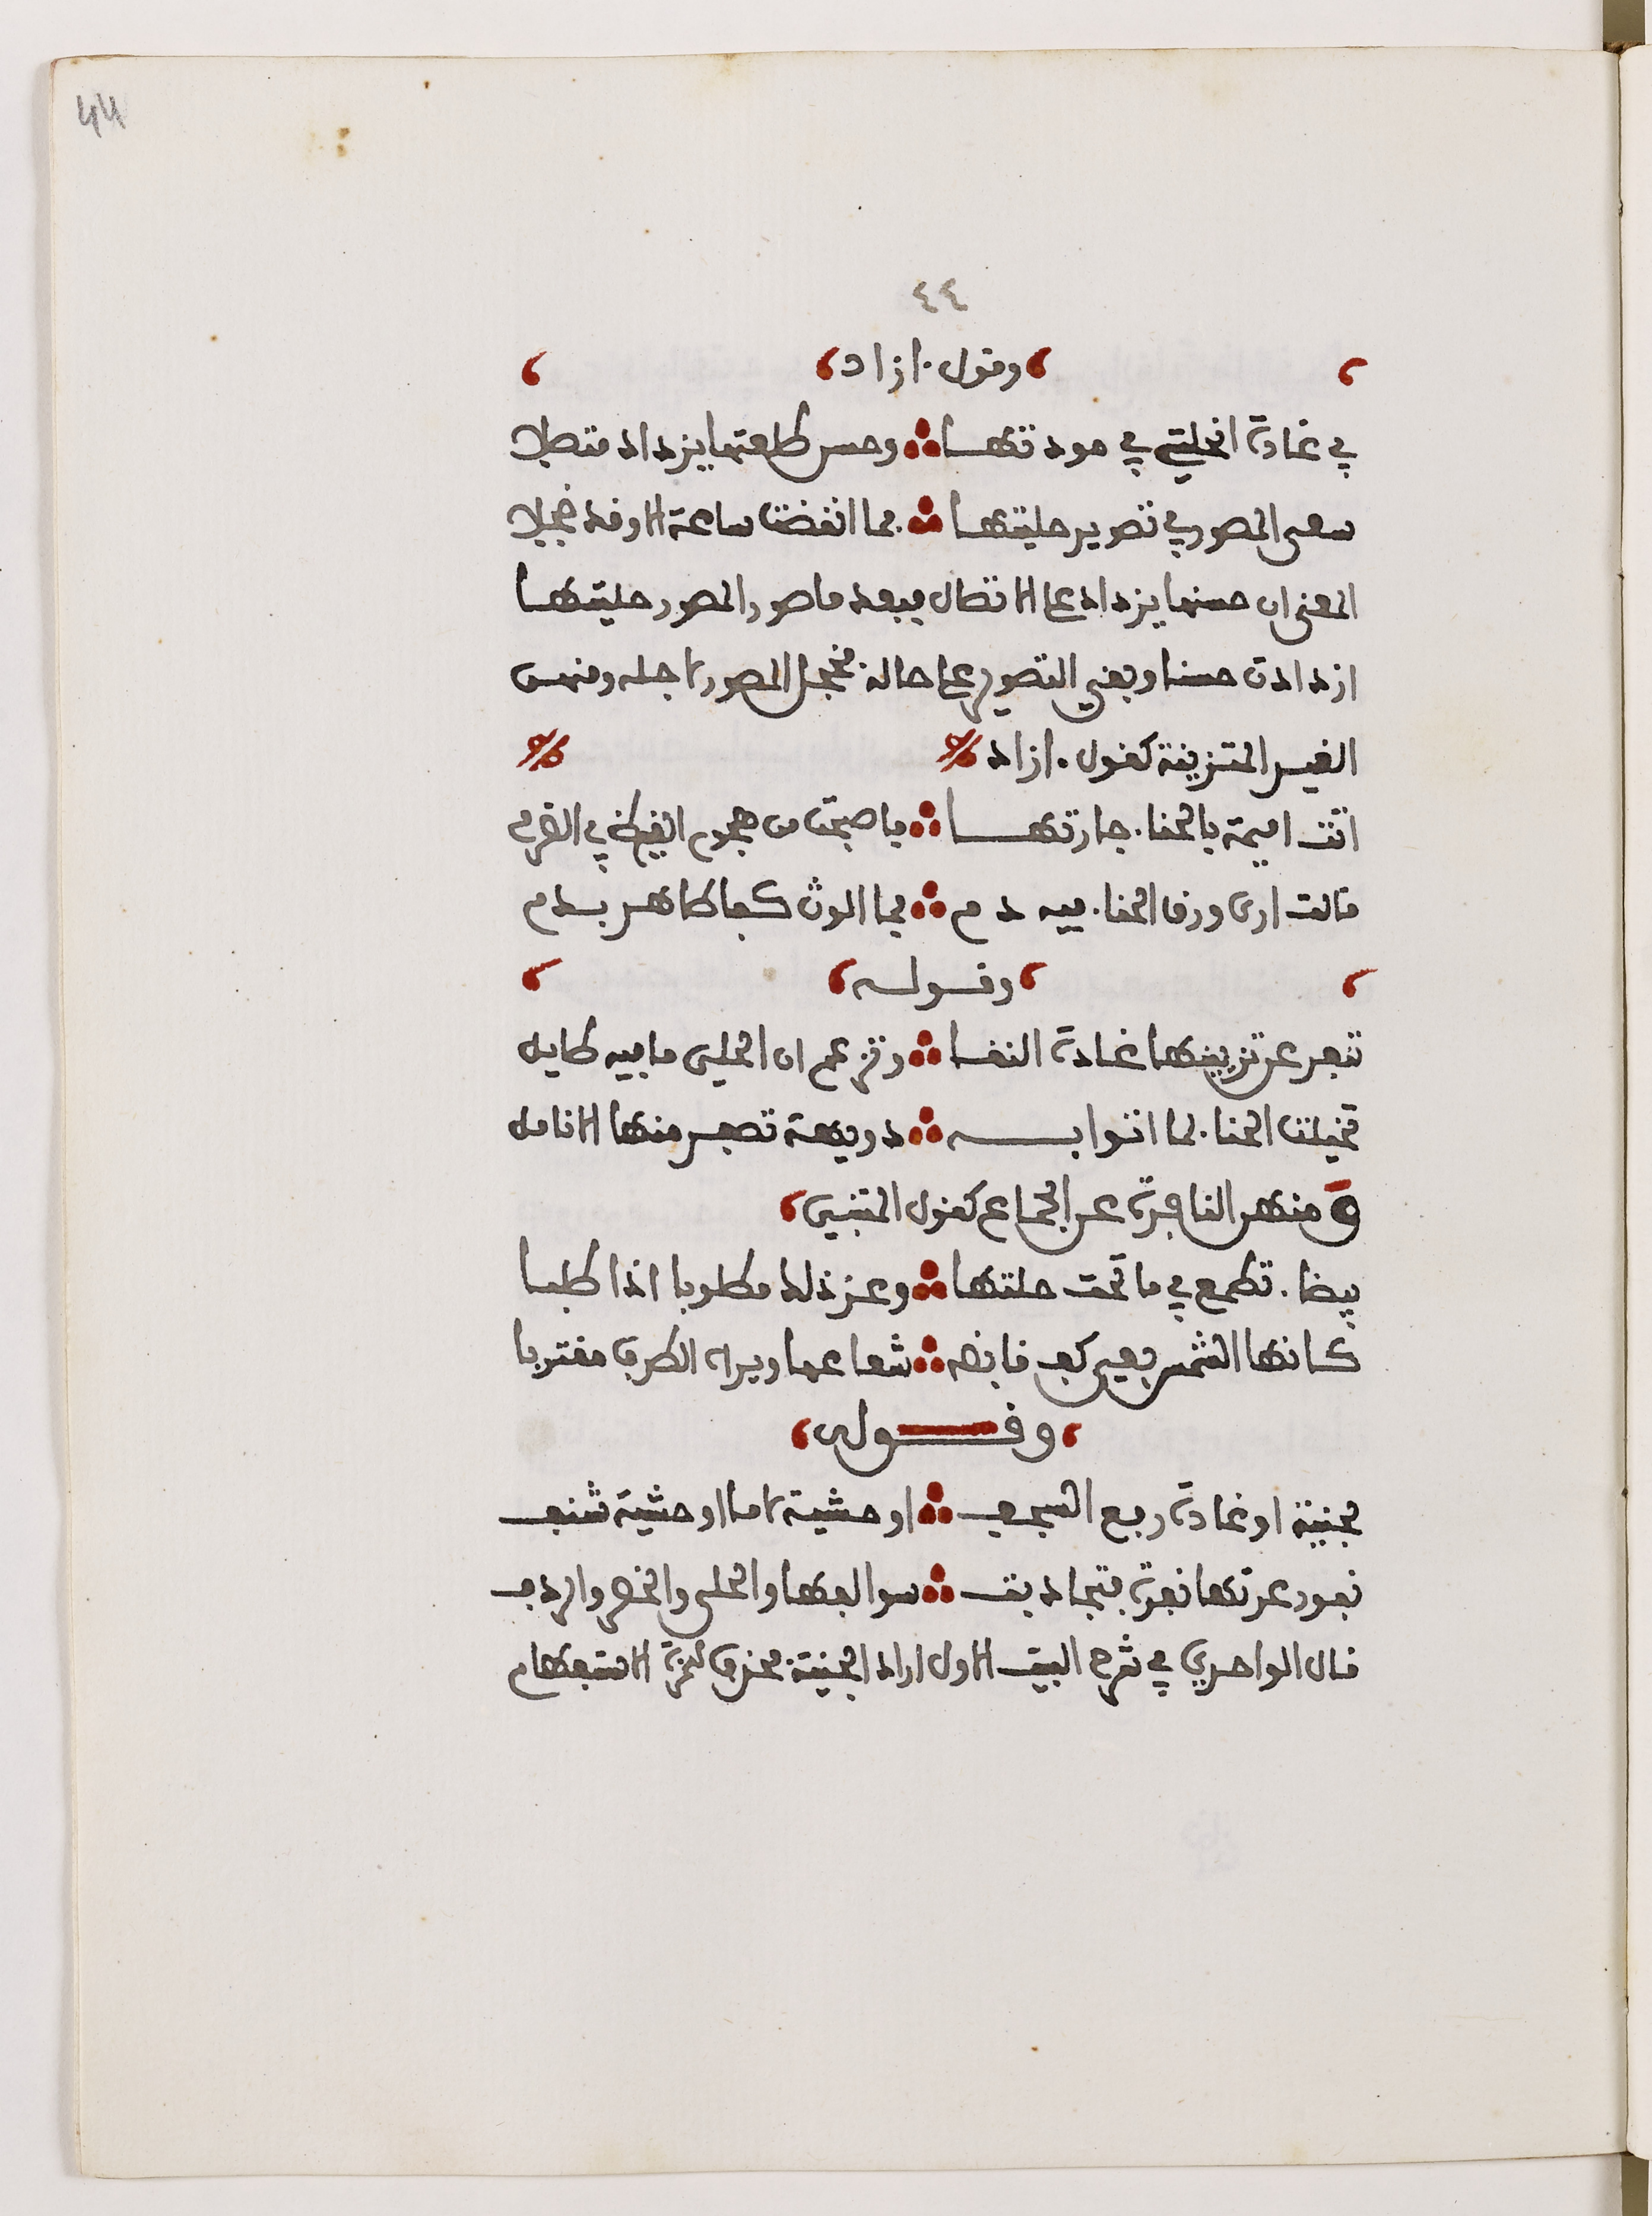 44
٤٤
وقول ازاد
في غادة انحليتي في مودتها وحسن طلعتها يزداد متصلا
سعى المصور في تصوير حليتها فما انقضت ساعة الا وقد خجلا
المعنى ان حسنها يزداد على الاتصال فبعد ما صور المصور حليتها
ازدادت حسنا وبقي التصوير على حاله فخجل المصور لاجله ومنهن
الغير المتزينة كقول ازاد
اتت اميمة بالحنا جارتها فاصبحت من هجوم الغيظ في الضرم
قالت ارى ورق الحنا فيه دم فما الوث كفا طاهر بدم
وقوله
تنفر عن تزيينها غادة النقا وتزعم ان الحلي ما فيه طايل
تخيلت الحنا لما اتوا به دويهة تصفر منها الانامل
ومنهن النافرة عن الجماع كقول المتنبي
بيضا تطمع في ما تحت حلتها وعز ذلك مطلوبا اذا طلبا
كانها الشمس يعيي كف قابضه شعاعها ويراه الطرف مقتربا
وقوله
لجنية او غادة رفع السجف او حشية لا ما لوحشية شنف
نفور عرتها نفرة فتجاذبت سوالفها والحلي والخصر والردف
قال الواحدي في شرح البيت الاول اراد الجنية فحذف همزة الاستفهام